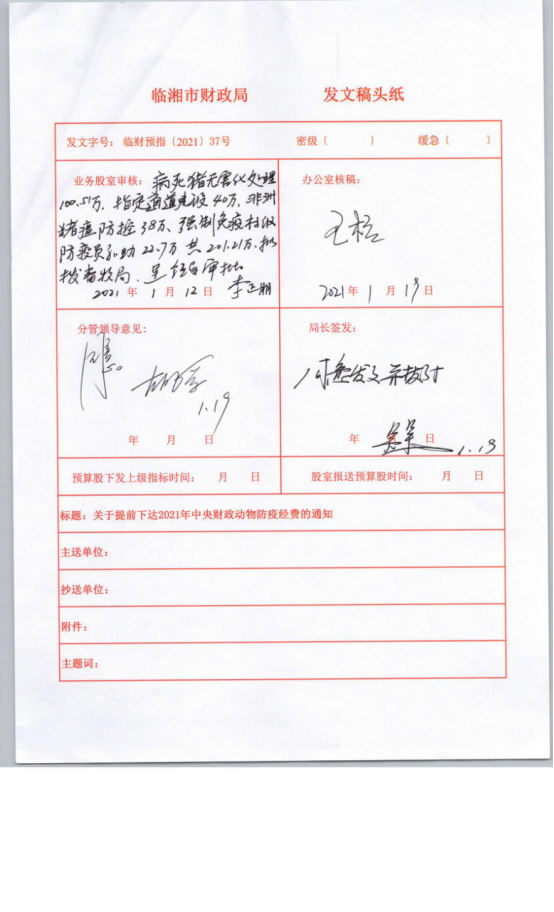 临湘市财政局 发文稿头纸
发文字号： 临财预指〔2021〕37号 密级（ ） 缓急（ ）
业务股室审核： 病死猪无害化处理
100.51万、指定通道建设40万、非洲
猪瘟防控38万、强制免疫村级
防疫员补助22.7万 共201.21万.拟
拨畜牧局. 呈 领导审批
2021 年 1 月 12 日
办公室核稿：
2021 年 1 月 19 日
分管领导意见：
同意。
1.19
年 月 日
局长签发：
同意发文并拨付
年 月 日
1.19
预算股下发上级指标时间： 月 日 股室报送预算股时间： 月 日
标题：关于提前下达2021年中央财政动物防疫经费的通知
主送单位：
抄送单位：
附件：
主题词：